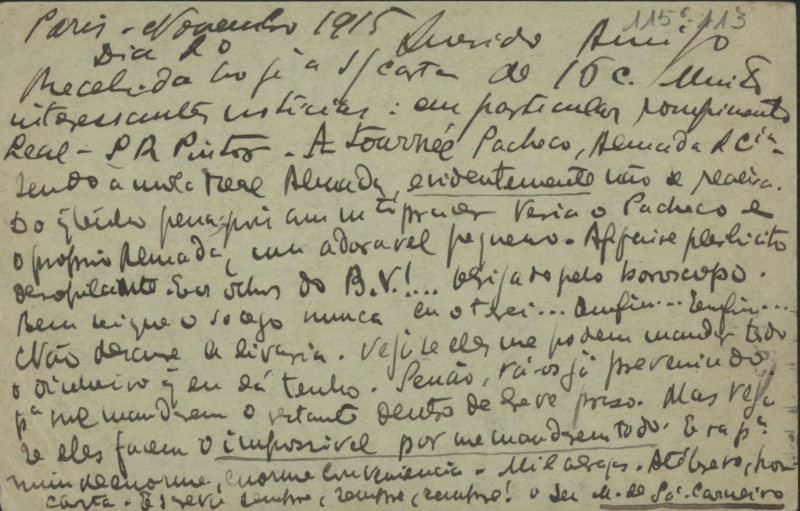 115⁶-113
Paris - Novembro 1915
Dia 2º Querido Amigo
Recebida hoje a s/ carta de 16 c. Muito
interessantes noticias: em particular rompimento
Leal - S R Pintor - A tournée Pacheco, Almada & Cia
sendo a mola real Almada, evidentemente não se realisa.
Do q tenho pena pois com mto prazer veria o Pacheco e
o proprio Almada, um adoravel pequeno. Affaire plebiscito
desopilante. Eu os olhos do B.V.!... Obrigado pelo horoscopo.
Bem sei que o socego nunca eu o terei... Emfim... Emfim...
Não descure a livraria. Veja se eles me podem mandar todo
o dinheiro q eu lá tenho. Senão, vá-os já prevenindo
pª me mandarem o restante dentro de breve praso. Mas veja
se eles fazem o impossivel por me mandarem todo. Era pª
mim de enorme, enorme conveniencia - Mil abraços. Até breve, por
carta. Escreva sempre, sempre, sempre! o seu M. de Sá-Carneiro